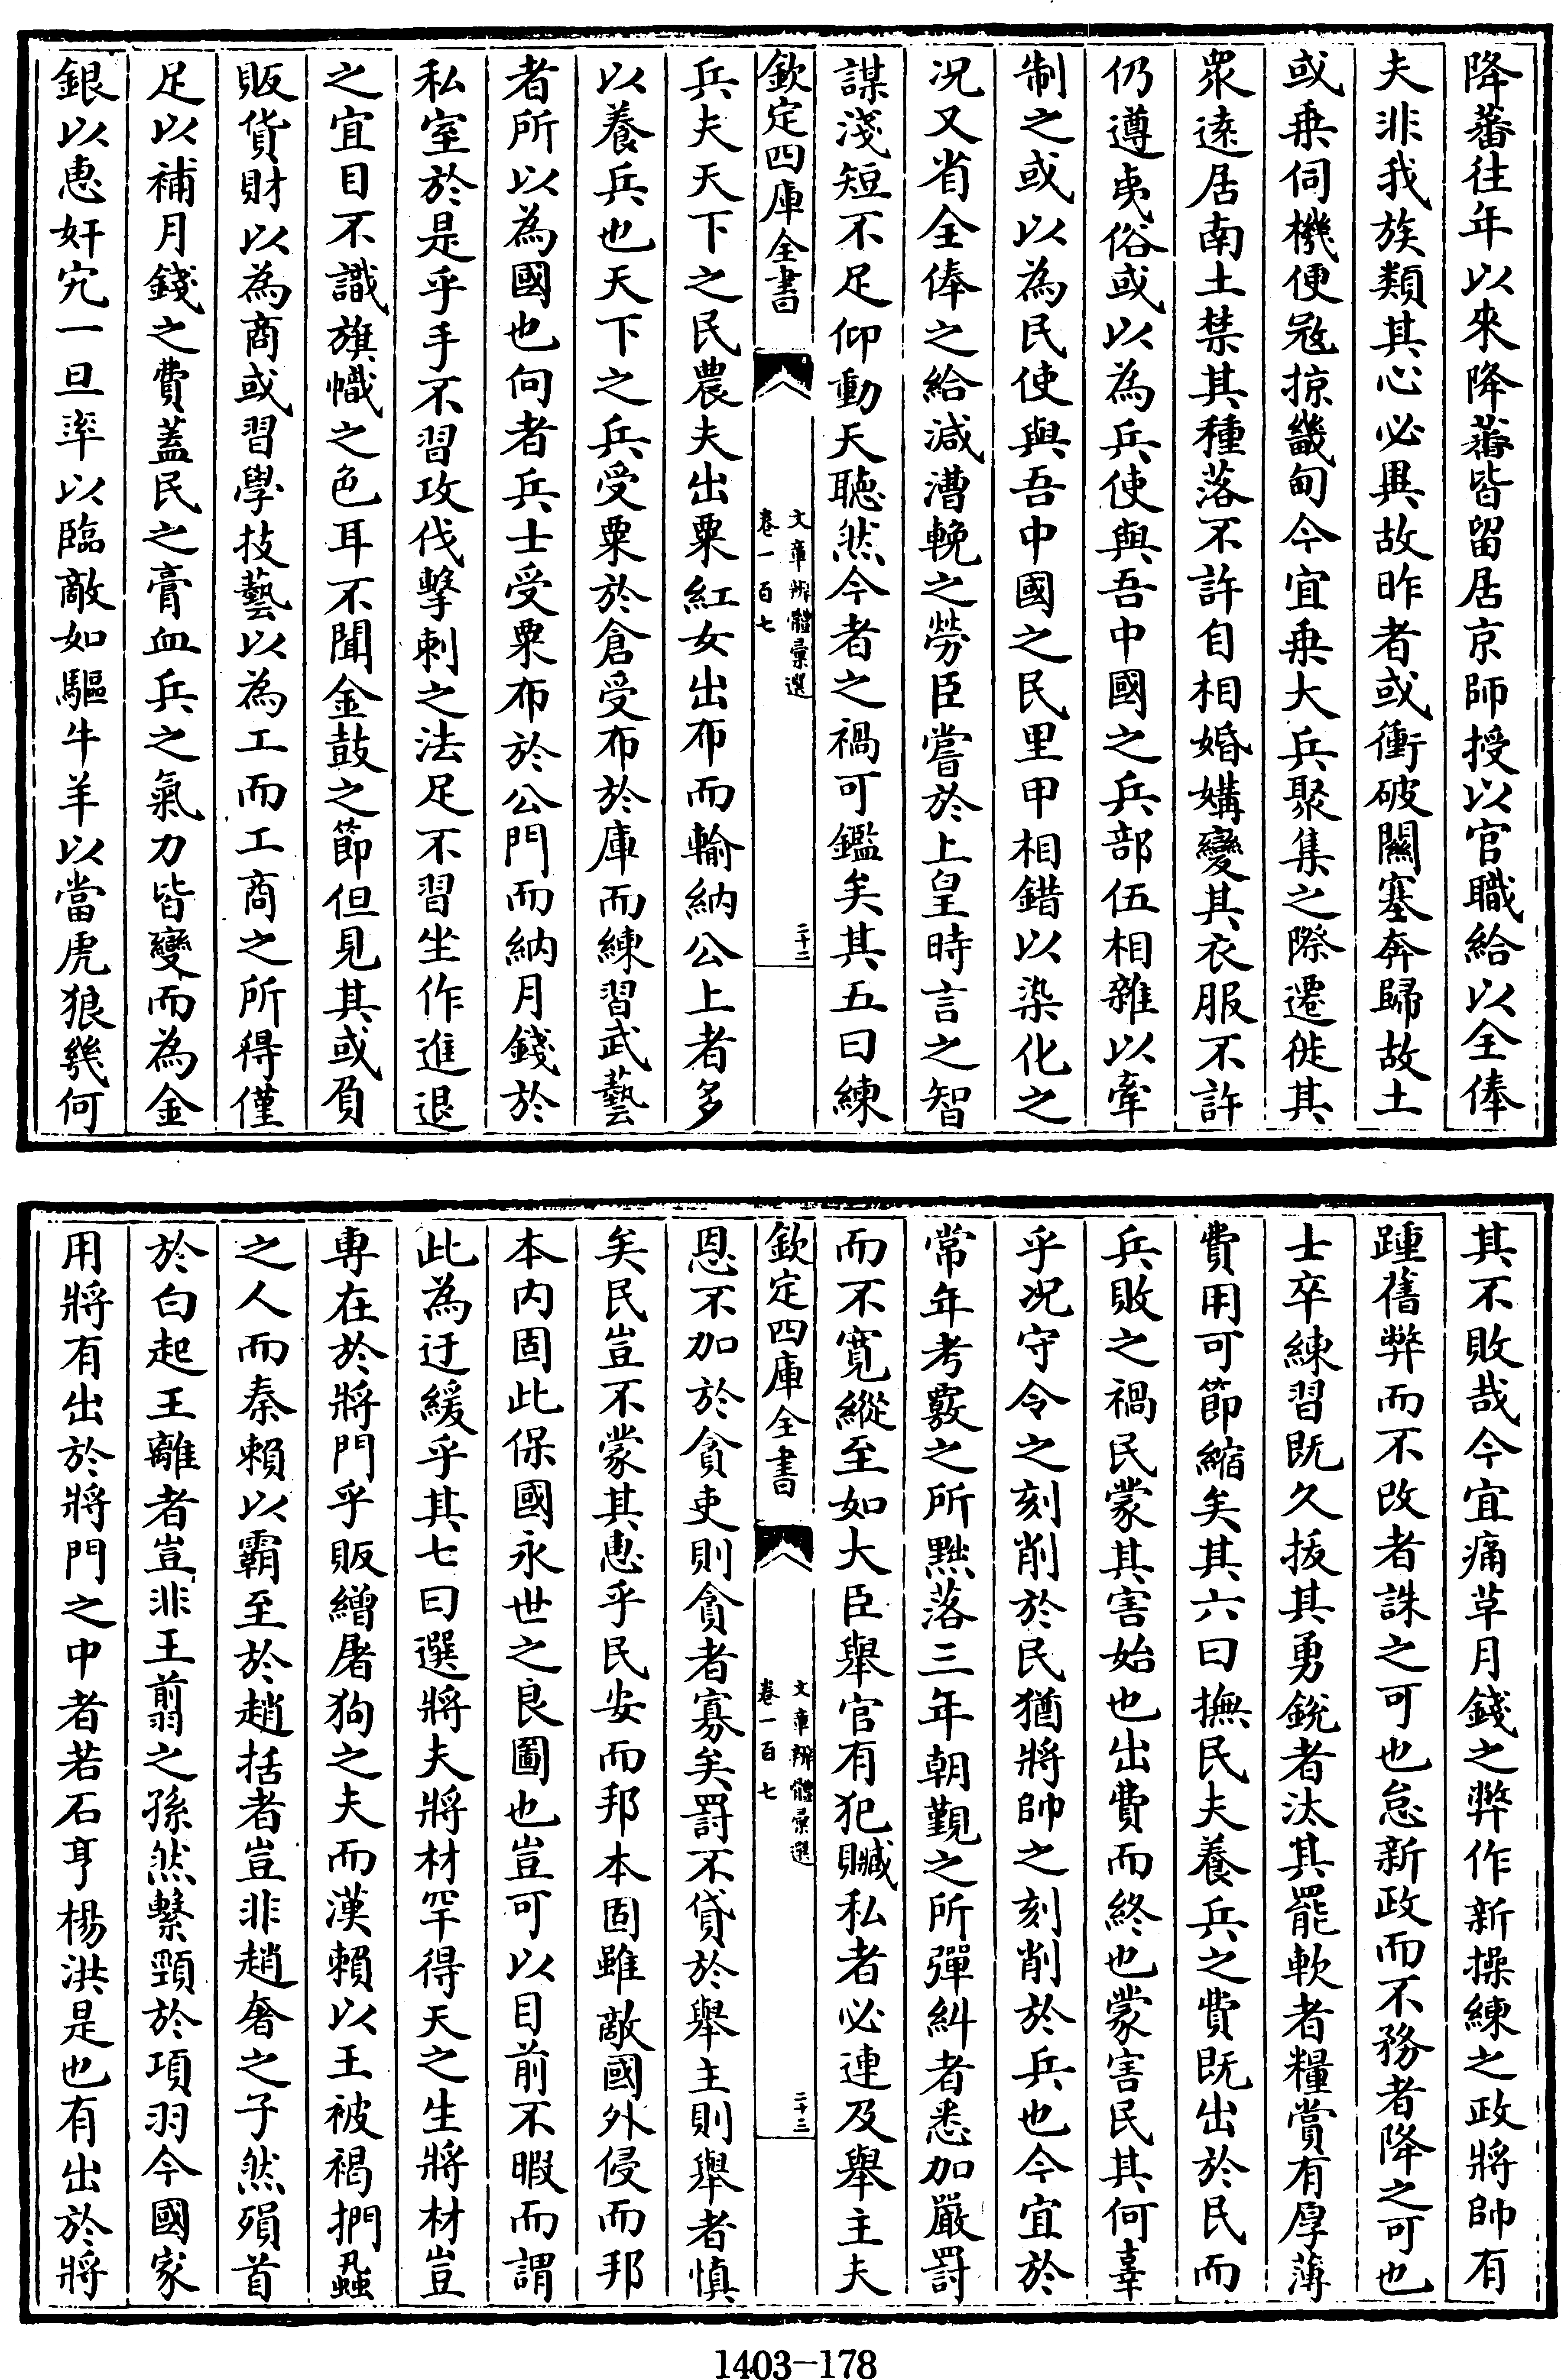 降蕃往年以來降蕃皆留居京師授以官職給以全俸
夫非我族類其心必異故昨者或衝破關塞奔歸故土
或乗伺機便冦掠畿甸今宜乗大兵聚集之際遷徙其
衆逺居南土禁其種落不許自相婚媾變其衣服不許
仍遵夷俗或以為兵使與吾中國之兵部伍相雜以牽
制之或以為民使與吾中國之民里甲相錯以染化之
况又省全俸之給減漕輓之勞臣嘗於上皇時言之智
謀淺短不足仰動天聴然今者之禍可鑑矣其五曰練
欽定四庫全書
文章辨體彙選
卷一百七
二十二
兵夫天下之民農夫出粟紅女出布而輸納公上者多
以養兵也天下之兵受粟於倉受布於庫而練習武藝
者所以為國也向者兵士受粟布於公門而納月錢於
私室於是乎手不習攻伐擊刺之法足不習坐作進退
之宜目不識旗幟之色耳不聞金鼓之節但見其或負
販貨財以為商或習學技藝以為工而工商之所得僅
足以補月錢之費蓋民之膏血兵之氣力皆變而為金
銀以惠奸宄一旦率以臨敵如驅牛羊以當虎狼幾何
其不敗哉今宜痛草月錢之弊作新操練之政將帥有
踵舊弊而不改者誅之可也怠新政而不務者降之可也
士卒練習既久拔其勇鋭者汰其罷軟者糧賞有厚薄
費用可節縮矣其六曰撫民夫養兵之費既出於民而
兵敗之禍民蒙其害始也出費而終也蒙害民其何辜
乎况守令之刻削於民猶將帥之刻削於兵也今宜於
常年考覈之所黜落三年朝覲之所彈糾者悉加嚴罰
而不寛縱至如大臣舉官有犯贓私者必連及舉主夫
欽定四庫全書
文章辨體彙選
卷一百七
二十三
恩不加於貪吏則貪者寡矣罰不貸於舉主則舉者慎
矣民豈不蒙其惠乎民安而邦本固雖敵國外侵而邦
本内固此保國永世之良圖也豈可以目前不暇而謂
此為迂緩乎其七曰選將夫將材罕得天之生將材豈
専在於將門乎販繒屠狗之夫而漢賴以王被褐捫蝨
之人而秦賴以霸至於趙括者豈非趙奢之子然殞首
於白起王離者豈非王翦之孫然繫頸於項羽今國家
用將有出於將門之中者若石亨楊洪是也有出於將
1403—178